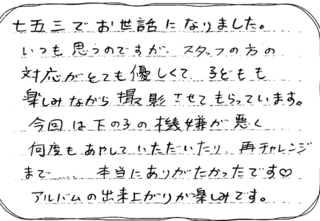 七五三でお世話になりました。
いつも思うのですが、スタッフの方の
対応がとても優しくて、子どもも
楽しみながら撮影させてもらっています。
今回は下の子の機嫌が悪く
何度もあやしていただいたり、再チャレンジ
まで……、本当にありがたかったです♡
アルバムの出来上がりが楽しみです。